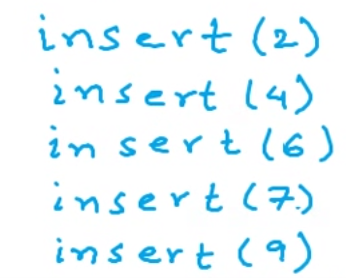 insert (2)
insert (4)
insert (6)
insert (7)
insert (9)